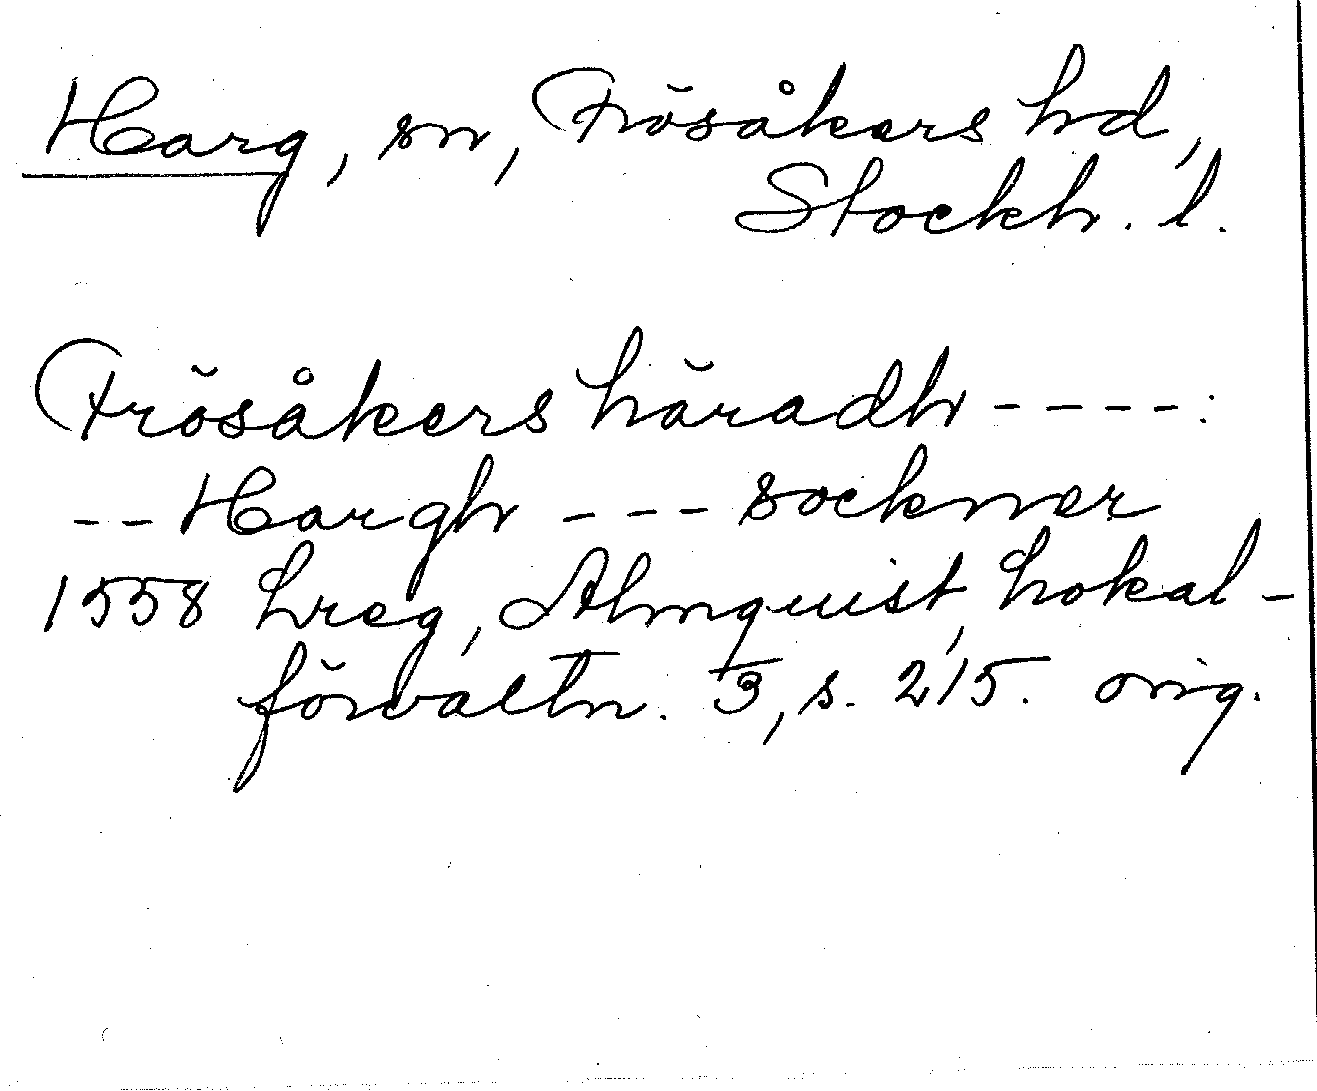 Harg, sn, Frösåkers hd,
Stockh. l.
Frösåkers häradh ----:
-- Hargh --- sockner
1558 Lreg, Almquist, Lokal-
förvaltn. 3, s. 215. orig.